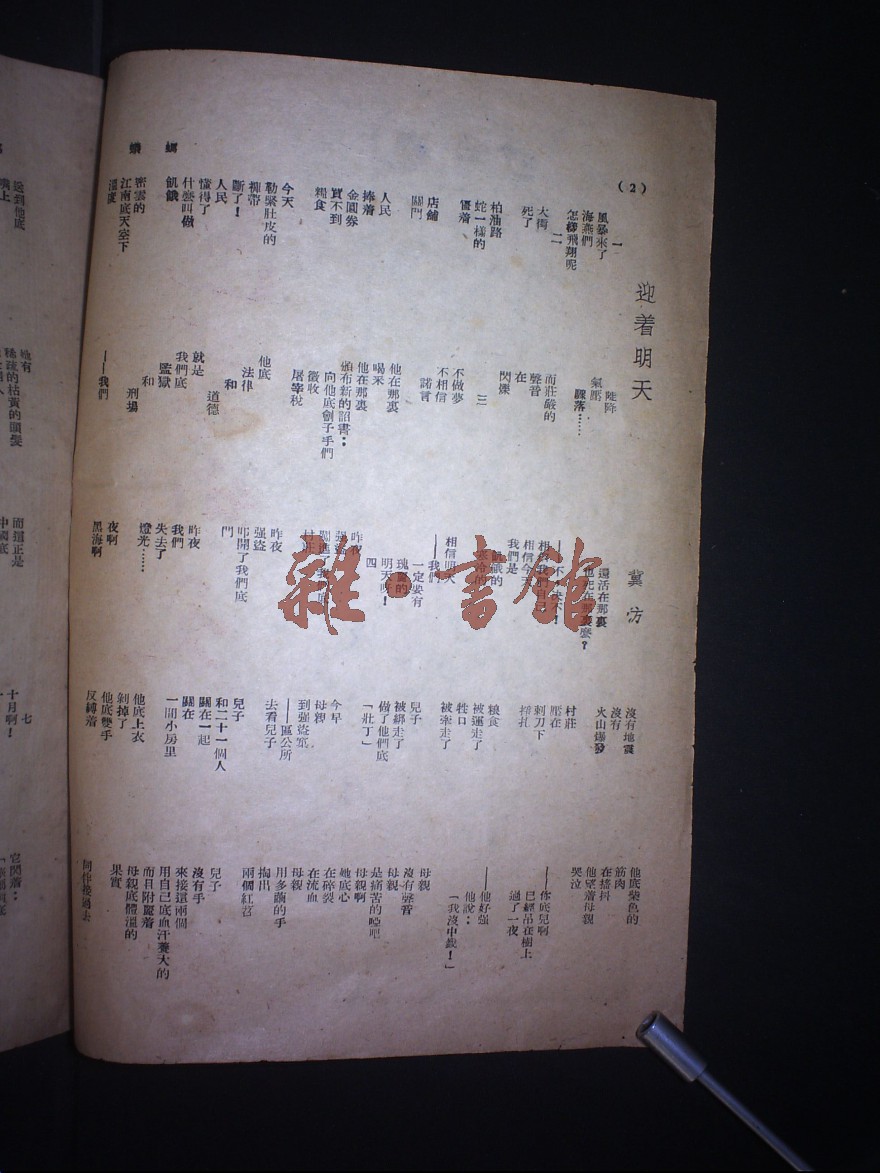 (2)
迎着明天
冀汸
一
風暴來了
海燕們
怎樣飛翔呢
二
大街
死了
柏油路
蛇一樣的
僵着
店舖
關門
人民
捧着
金圓劵
買不到
糧食
今天
勒緊肚皮的
褲帶
斷了！
人民
懂得了
什麼叫做
飢餓
密雲的
江南底天空下
溫度
陡降
氣壓
驟落……
而莊嚴的
聲音
在
閃爍
三
不做夢
不相信
諾言
他在那裏
喝采
他在那裏
頒布新的詔書：
向他底劊子手們
徵收
屠宰稅
他底
法律
和
道德
就是
我們底
監獄
和
刑場
——我們
還活在那裏
也死在那裏麼？
相信我們自己
相信今天
我們是
飢餓的
——我們
相信明天
一定要有
瑰麗的
明天呀！
四
昨夜
强盜
昨夜
强盜
叩開了我們底
門
昨夜
我們
失去了
燈光……
夜啊
黑海啊
沒有地震
沒有
火山爆發
村莊
壓在
刺刀下
掙扎
粮食
被運走了
牲口
被牽走了
兒子
被綁走了
做了他們底
「壯丁」
今早
母親
到强盜窟
——區公所
去看兒子
兒子
和二十一個人
關在一起
關在
一間小房里
他底上衣
剝掉了
他底雙手
反縛着
他底柴色的
筋肉
在搐抖
他望着母親
哭泣
——你底兒啊
已經吊在樹上
過了一夜
——他好强
他說：
「我沒中籤！」
母親
沒有聲音
母親
是痛苦的啞吧
母親啊
她底心
在碎裂
在流血
母親
用多繭的手
掏出
兩個紅苕
兒子
沒有手
來接這兩個
用自己底血汗養大的
而且附麗着
母親底體溫的
果實
同伴接過去
送到他底
嘴上
她有
稀疏的枯黃的頭髮
而這正是
中國底
七
十月啊！
它閃着：